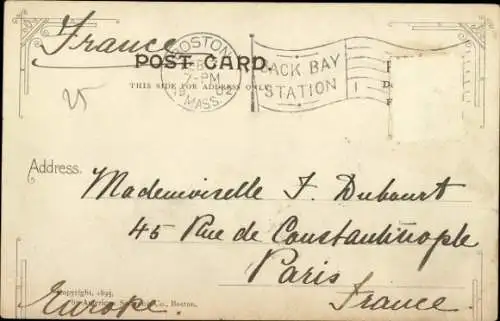 France
POST CARD.
THIS SIDE FOR ADDRESS ONLY
BOSTON
FEB
7-PM
02
MASS.
BACK BAY
STATION
1
25
Address.
Mademoiselle F. Dubourt
45 Rue de Constantinople
Paris
France.
Copyright, 1895,
by American Co., Boston.
Europe.